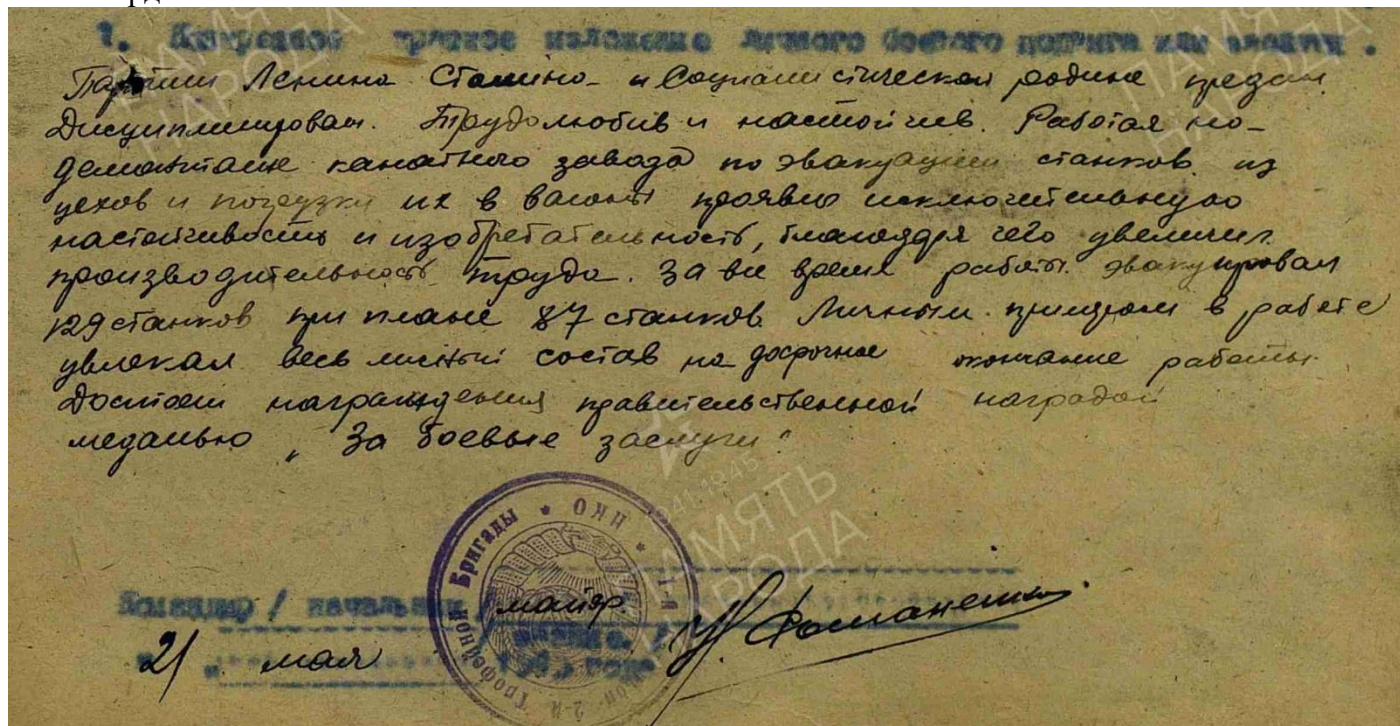 1. Конкретное краткое изложение личного боевого подвига или заслуг.
Партии Ленина Сталина и Социалистической родине предан
Дисциплинирован. Трудолюбив и настойчив. Работая по-
демонтаже канатного завода по эвакуации станков из
цехов и погрузки их в вагоны проявил исключительную
настойчивость и изобретательность, благодаря чего увеличил
производительность труда. За все время работы эвакуировал
129 станков при плане 87 станков. Личным примером в работе
увлекал весь личный состав на досрочное окончание работы.
Достоин награждения правительственной наградой
медалью „За боевые заслуги“
НКО * 1-й
2-й Трофейной Бригады *
Командир / начальник / майор
звание /
21 мая
ПАМЯТЬ
НАРОДА
1941-1945
ПАМЯТЬ
НАРОДА